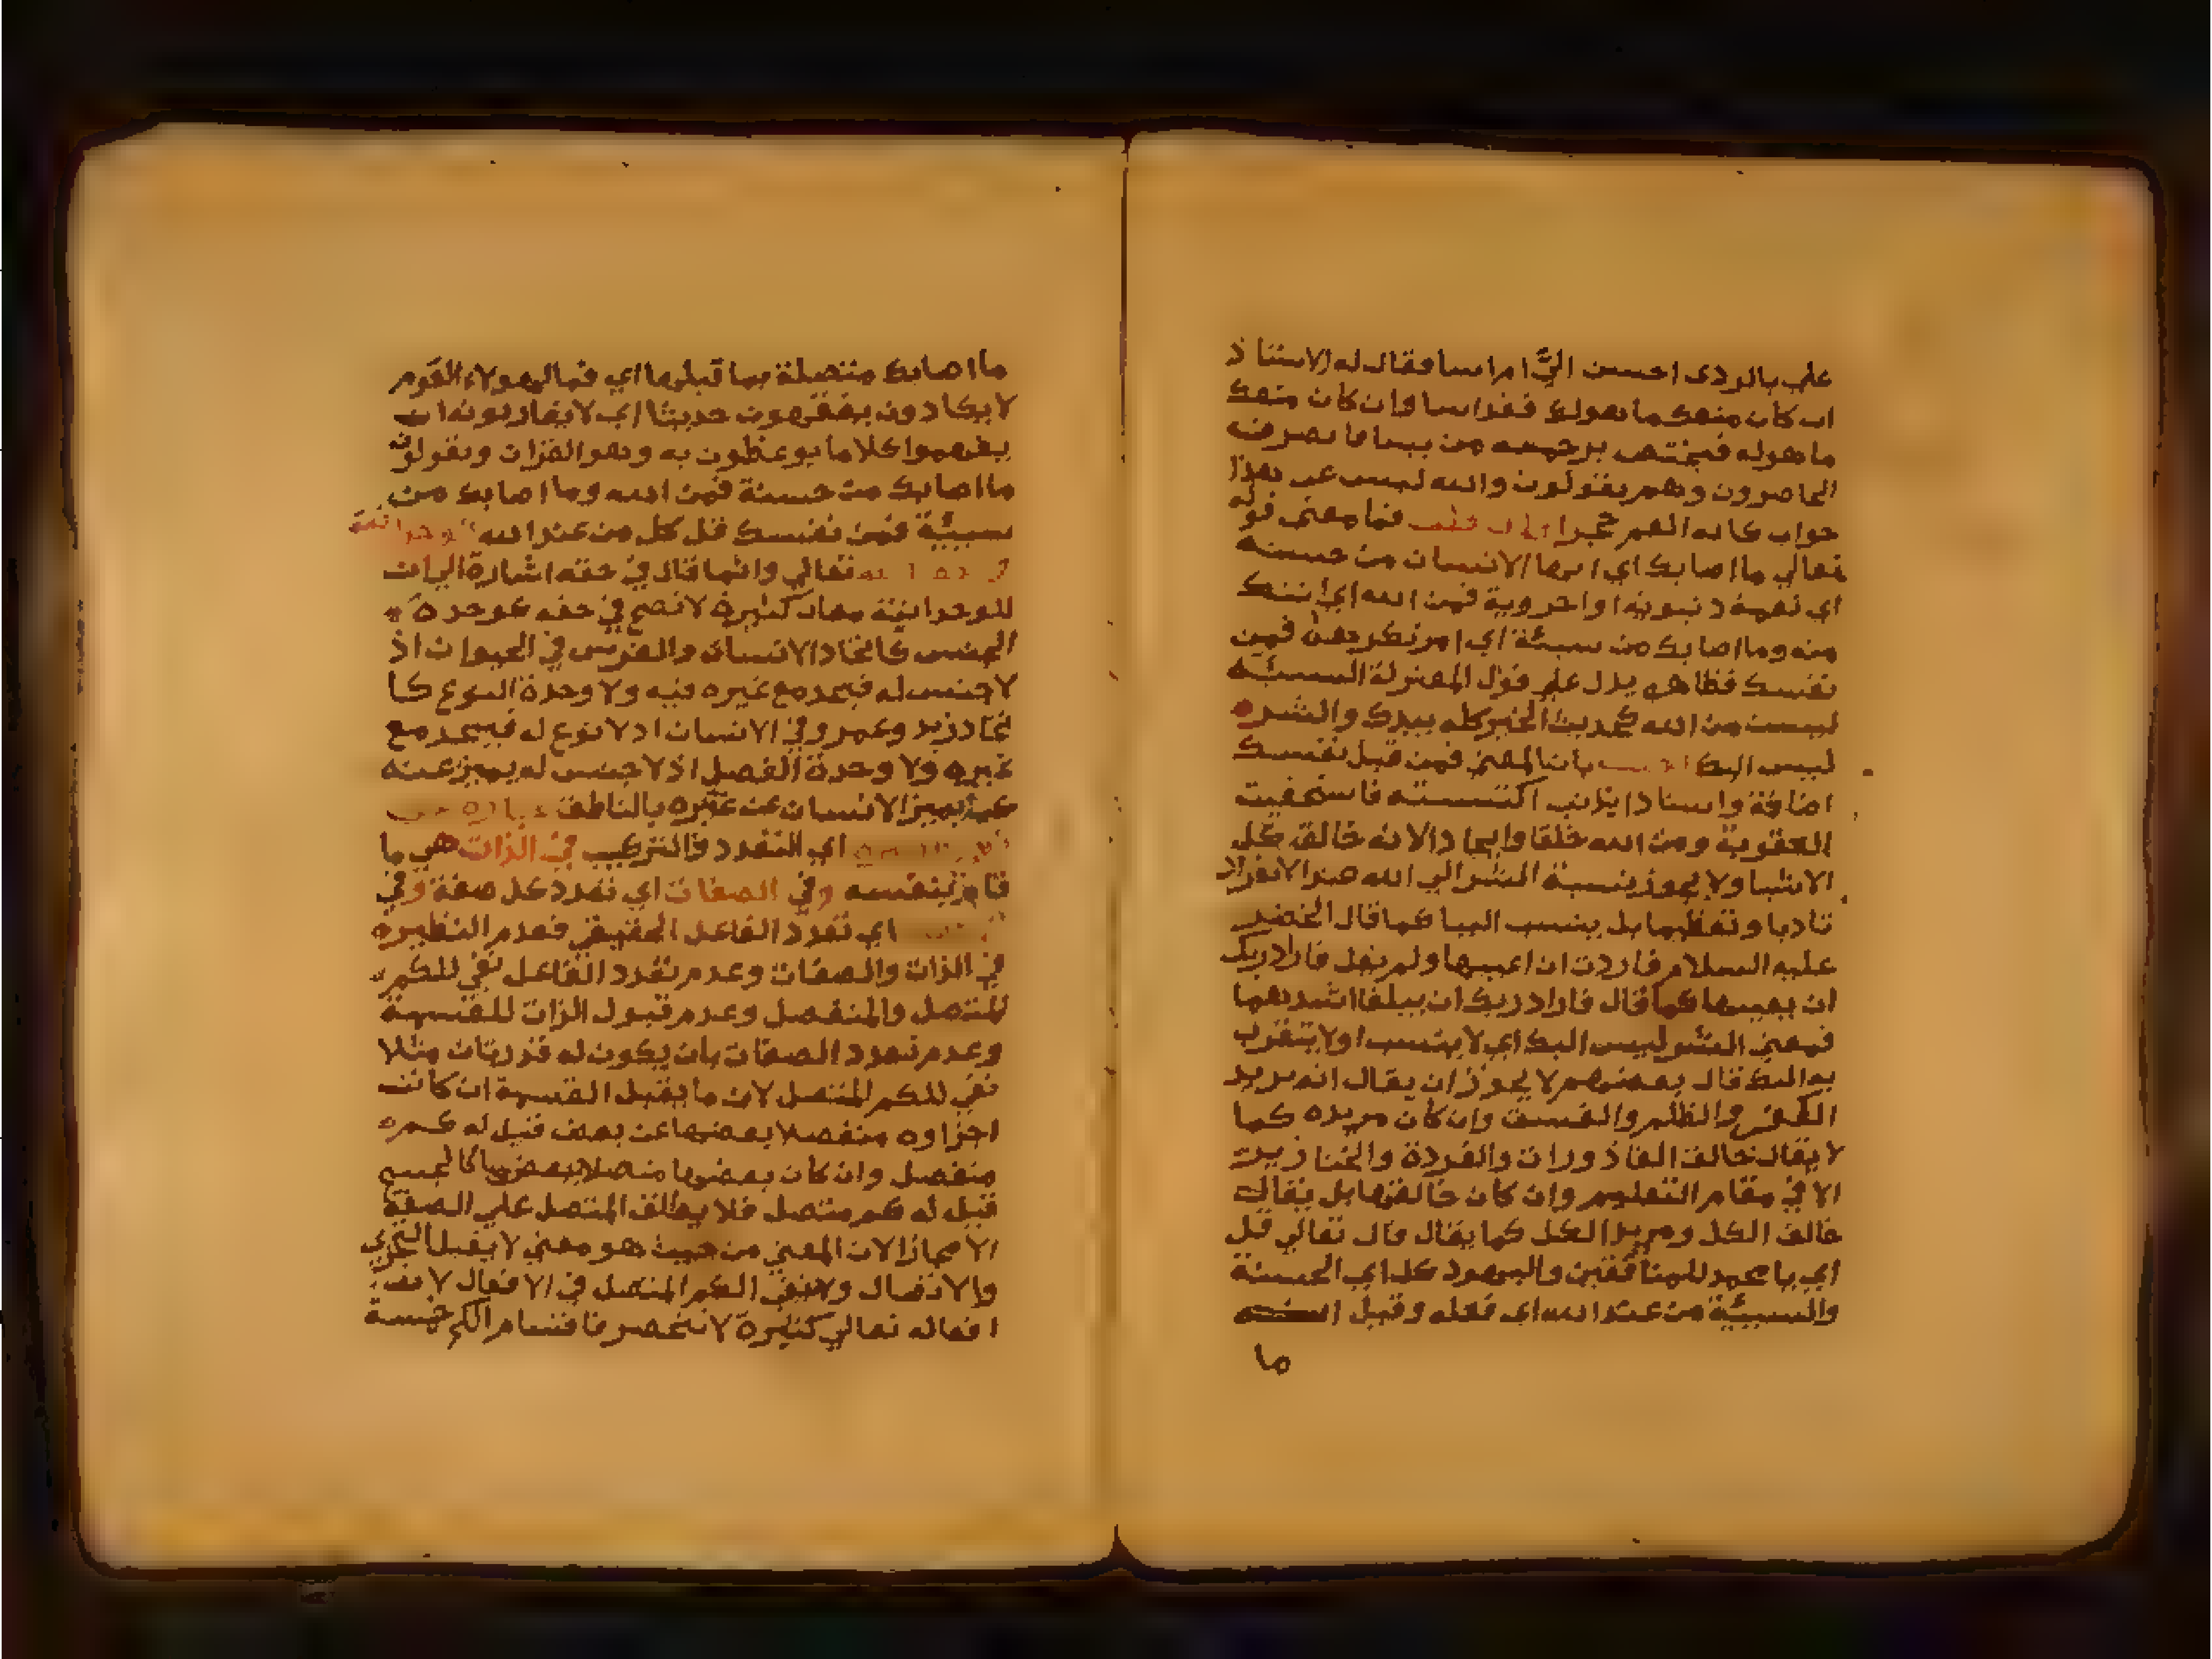 علي بالردى احسن اليَّ ام اسا فقال له الاستاذ
ان كان منعك ما هو لك فقد اسا وان كان منعك
ما هو له فيختص برحمته من يشا فانصرف
الحاضرون وهم يقولون والله ليس عن هذا
جواب كانه القم حجرا فان قلت فما معني قوله
تعالي ما اصابك اي ايها الانسان من حسنة
اي نعمة دنيوية او اخروية فمن الله اي اتتك
منه وما اصابك من سيئة اي امر تكرهه فمن
نفسك فظاهره يدل علي قول المعتزلة السيئة
ليست من الله كحديث الخير كله بيدك والشر
ليس اليك بان المعني فمن قبل نفسك
اضافة واسنادا بذنب اكتسبته فاستحقيت
العقوبة ومن الله خلقا وايجادا لانه خالق كل
الاشيا ولا يجوز نسبة الشر الي الله عند الانفراد
تادبا وتعظيما بل ينسب الينا كما قال الخضر
عليه السلام فاردت ان اعيبها ولم يقل فاراد ربك
ان يعيبها كما قال فاراد ربك ان يبلغا اشدهما
فمعني الشر ليس اليك اي لا ينسب او لا يتقرب
به اليك قال بعضهم لا يجوز ان يقال انه يريد
الكفر والظلم والفسق وان كان مريده كما
لا يقال خالق القاذورات والقردة والخنازير
الا في مقام التعليم وان كان خالقها بل يقال
خالق الكل ومريد الكل كما يقال قال تعالي قل
اي يا محمد للمنافقين واليهود كل اي الحسنة
والسيئة من عند الله اي فعله وقيل
ما
ما اصابك متصلة بما قبلها اي فمال هولاء القوم
لا يكادون يفقهون حديثا اي لا يقاربون ان
يفهموا كلاما يوعظون به وهو القران ويقولون
ما اصابك من حسنة فمن الله وما اصابك من
سيئة فمن نفسك قل كل من عند الله
تعالي وانما قال في حقه اشارة الي ان
للوحدانية معان كثيرة لا تصح في حقه كوحدة
الجنس كاتحاد الانسان والفرس في الحيوان اذ
لا جنس له فيتحد مع غيره فيه ولا وحدة النوع كا
تحاد زيد وعمرو في الانسان اذ لا نوع له فيتحد مع
غيره ولا وحدة الفصل اذ لا جنس له يميز عنه
كما يميز الانسان عن غيره بالناطق
اي التفرد والتركيب في الذات هي ما
قام بنفسه وفي الصفات اي تعدد كل صفة وفي
اي تفرد الفاعل الحقيقي فعدم النظير
في الذات والصفات وعدم تعدد الفاعل نفي للكم
المتصل والمنفصل وعدم قبول الذات للقسمة
وعدم تعدد الصفات بان يكون له قدرتان مثلا
نفي للكم المتصل لان ما يقبل القسمة ان كانت
اجزاوه منفصلا بعضها عن بعض قيل له كم
منفصل وان كان بعضها متصلا ببعض كالجسم
قيل له كم متصل فلا يطلق المتصل علي الصفة
الا مجازا لان المعني من حيث هو معني لا يقبل التجزي
والانفصال ولا نفي الكم المتصل في الافعال لان
افعاله تعالي كثيرة لا تنحصر فاقسام الكم خمسة